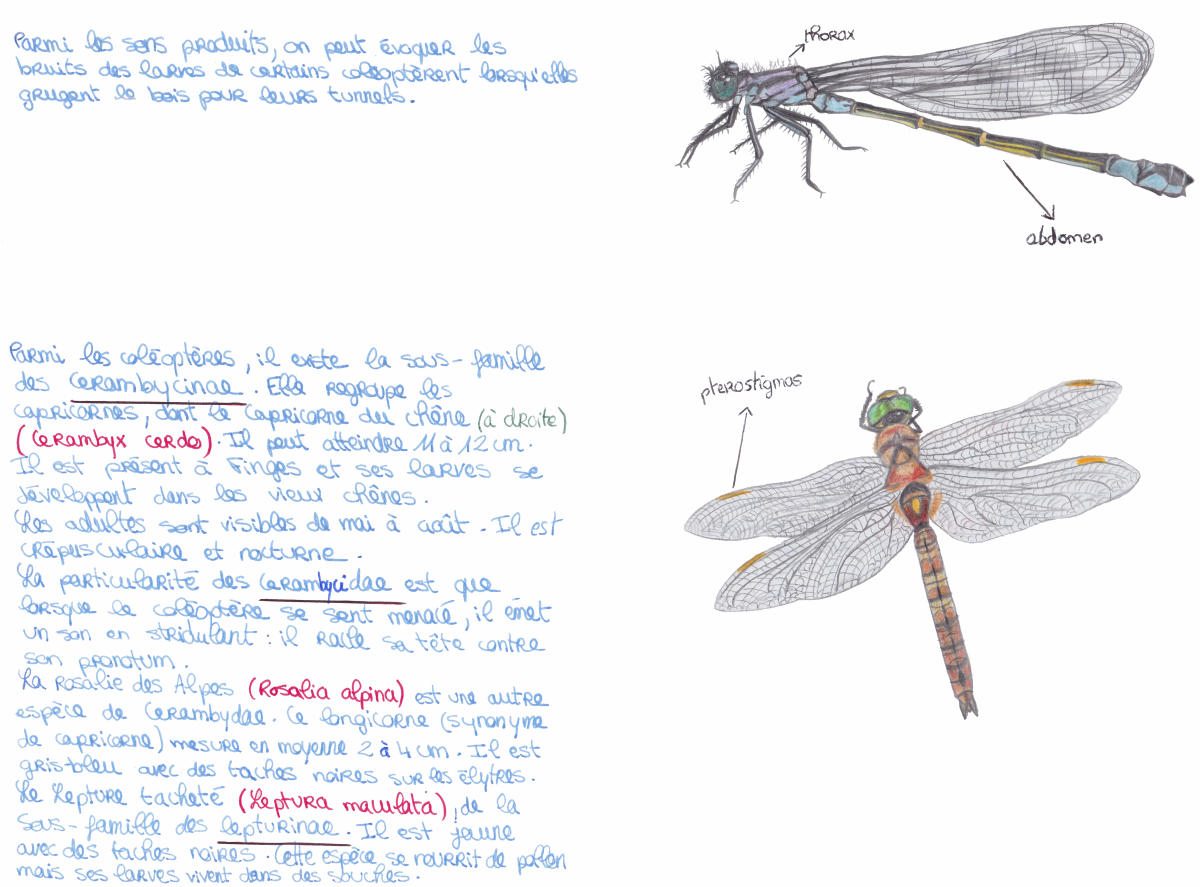 Parmi les sons produits, on peut évoquer les
bruits des larves de certains coléoptèrent lorsqu'elles
grugent le bois pour leurs tunnels.
thorax
abdomen
Parmi les coléoptères, il existe la sous-famille
des Cerambycinae. Elle regroupe les
capricornes, dont le Capricorne du chêne (à droite)
(Cerambyx cerdo). Il peut atteindre 11 à 12 cm.
Il est présent à Finges et ses larves se
développent dans les vieux chênes.
Les adultes sont visibles de mai à août. Il est
crépusculaire et nocturne.
La particularité des Cerambycidae est que
lorsque le coléoptère se sent menacé, il émet
un son en stridulant : il racle sa tête contre
son pronotum.
La Rosalie des Alpes (Rosalia alpina) est une autre
espèce de Cerambydae. Ce longicorne (synonyme
de capricorne) mesure en moyenne 2 à 4 cm. Il est
gris-bleu avec des taches noires sur les élytres.
Le Lepture tacheté (Leptura maculata), de la
sous-famille des lepturinae. Il est jaune
avec des taches noires. Cette espèce se nourrit de pollen
mais ses larves vivent dans des souches.
pterostigmas